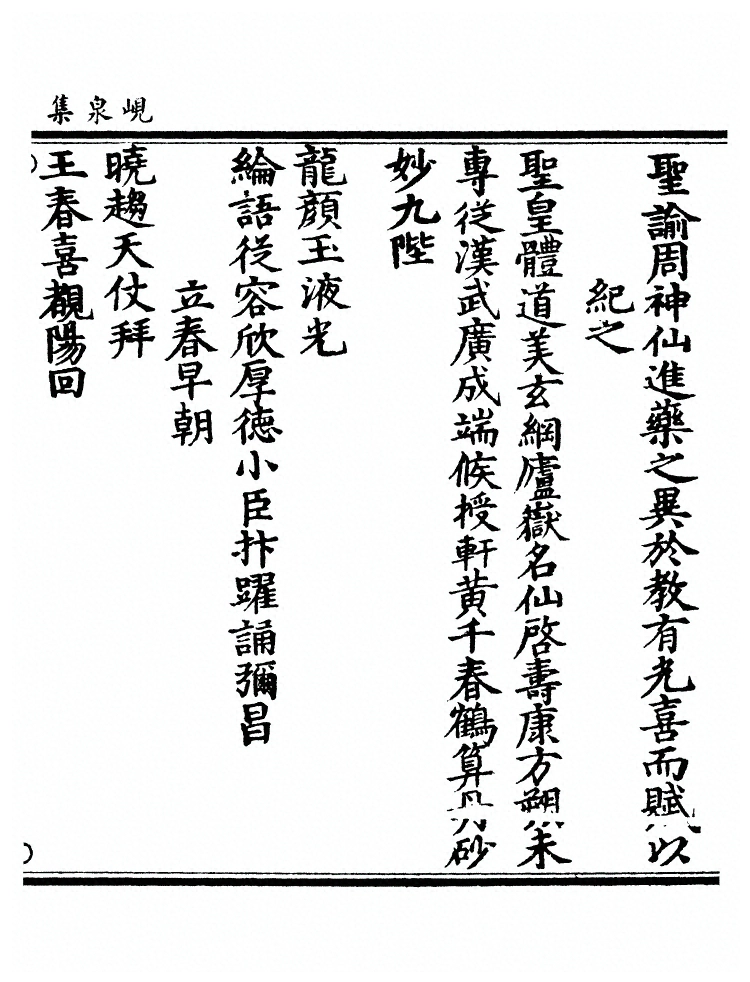 峴泉集
聖諭周神仙進藥之異於教有光喜而賦以
紀之
聖皇體道美玄綱廬嶽名仙啓壽康方朔未
專從漢武廣成端候授軒黄千春鶴算丹砂
妙九陛
龍顏玉液光
綸語從容欣厚德小臣抃躍誦彌昌
立春早朝
曉趨天仗拜
王春喜覩陽回